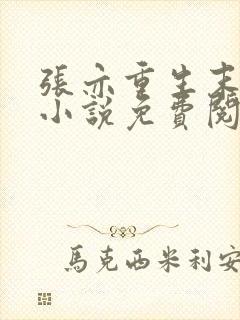 張亦重生末
小說免費閱
馬克西米利安